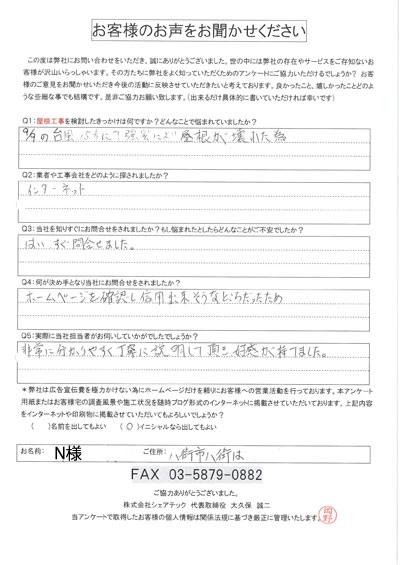 お客様のお声をお聞かせください
この度は弊社にお問い合わせをいただき、誠にありがとうございました。世の中には弊社の存在やサービスをご存知ないお
客様が沢山いらっしゃいます。その方たちに弊社をよく知っていただくためのアンケートにご協力いただけるでしょうか？ お客
様のご意見をお聞かせいただき今後の活動に反映させていただきたいと考えております。良かったこと、嬉しかったことどのよ
うな些細な事でも結構です。是非ご協力お願い致します。（出来るだけ具体的に書いていただければ幸いです）
Q1:屋根工事を検討したきっかけは何ですか？どんなことで悩まれていましたか？
9/9の台風15号にて強風により屋根が壊れた為
Q2:業者や工事会社をどのように探されましたか？
インターネット
Q3:当社を知りすぐにお問合せをされましたか？もし悩まれたとしたらどんなことがご不安でしたか？
はい すぐ問合せました。
Q4:何が決め手となり当社にお問合せをされましたか？
ホームページを確認し信用出来そうなところだったため
Q5:実際に当社担当者がお伺いしていかがでしたでしょうか？
非常に分かりやすく丁寧に説明して頂き好感が持てました。
＊弊社は広告宣伝費を極力かけない為にホームページだけを頼りにお客様への営業活動を行っております。本アンケート
用紙またはお客様宅の調査風景や施工状況を随時ブログ形式のインターネットに掲載させていただいております。上記内容
をインターネットや印刷物に掲載させていただいてもよろしいでしょうか？
（　）名前を出してもよい （○）イニシャルなら出してもよい
お名前: N様 ご住所: 八街市八街は
FAX 03-5879-0882
ご協力ありがとうございました。
株式会社シェアテック 代表取締役 大久保 誠二
当アンケートで取得したお客様の個人情報は関係法規に基づき厳正に管理いたします。
岡野